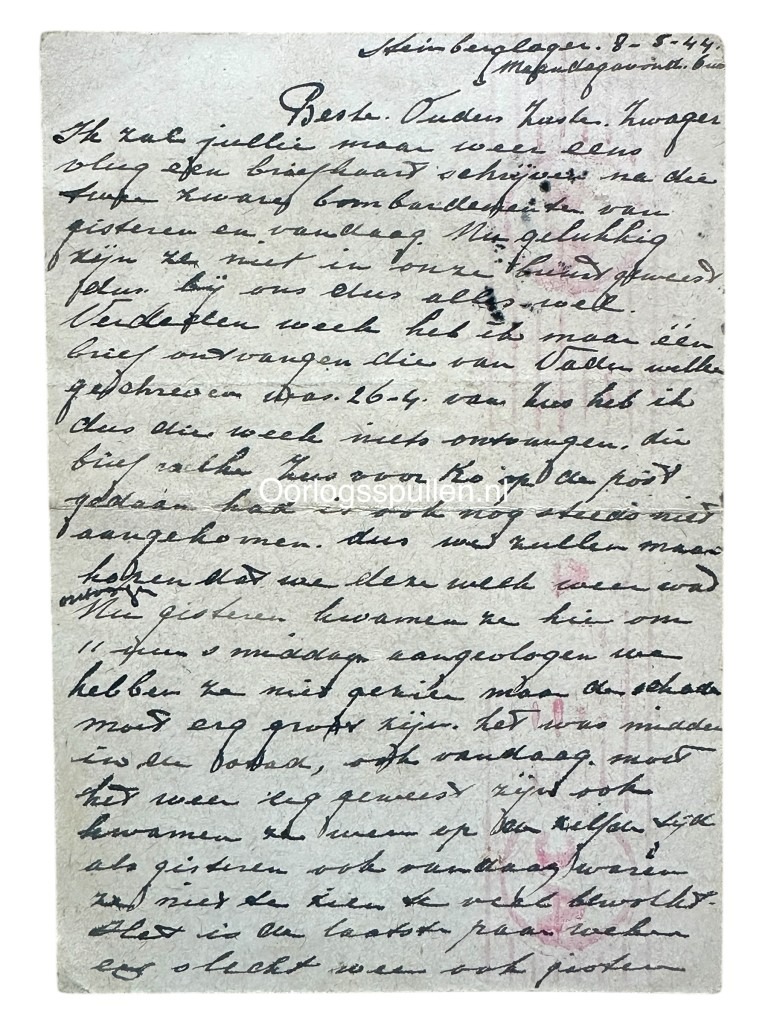 Steinberglager. 8-5-44.
Maandagavond. 6 uur
Beste. Ouders Zuste. Zwager
Ik zal jullie maar weer eens
vlug een briefkaart schrijven na die
twee zware bombardementen van
gisteren en vandaag. Nu gelukkig
zijn ze niet in onze buurt geweest
dus. bij ons dus alles wel.
Verleden week heb ik maar één
brief ontvangen die van Vader welke
geschreven was. 26-4. van Zus heb ik
dus die week niets ontvangen. die
brief welke Zus voor Ko op de post
Oorlogsspullen.nl
gedaan had is ook nog steeds niet
aangekomen. dus we zullen maar
hopen dat we deze week weer wat
ontvangen
Nu gisteren kwamen ze hier om
11 uur s middags aangevlogen we
hebben ze niet gezien maar de schade
moet erg groot zijn. het was midden
in de stad, ook vandaag. moet
het weer erg geweest zijn ook
kwamen ze weer op de zelfde tijd
als gisteren ook vandaag waren
ze niet te zien te veel bewolkt.
Het is de laatste paar weken
erg slecht weer ook gisteren